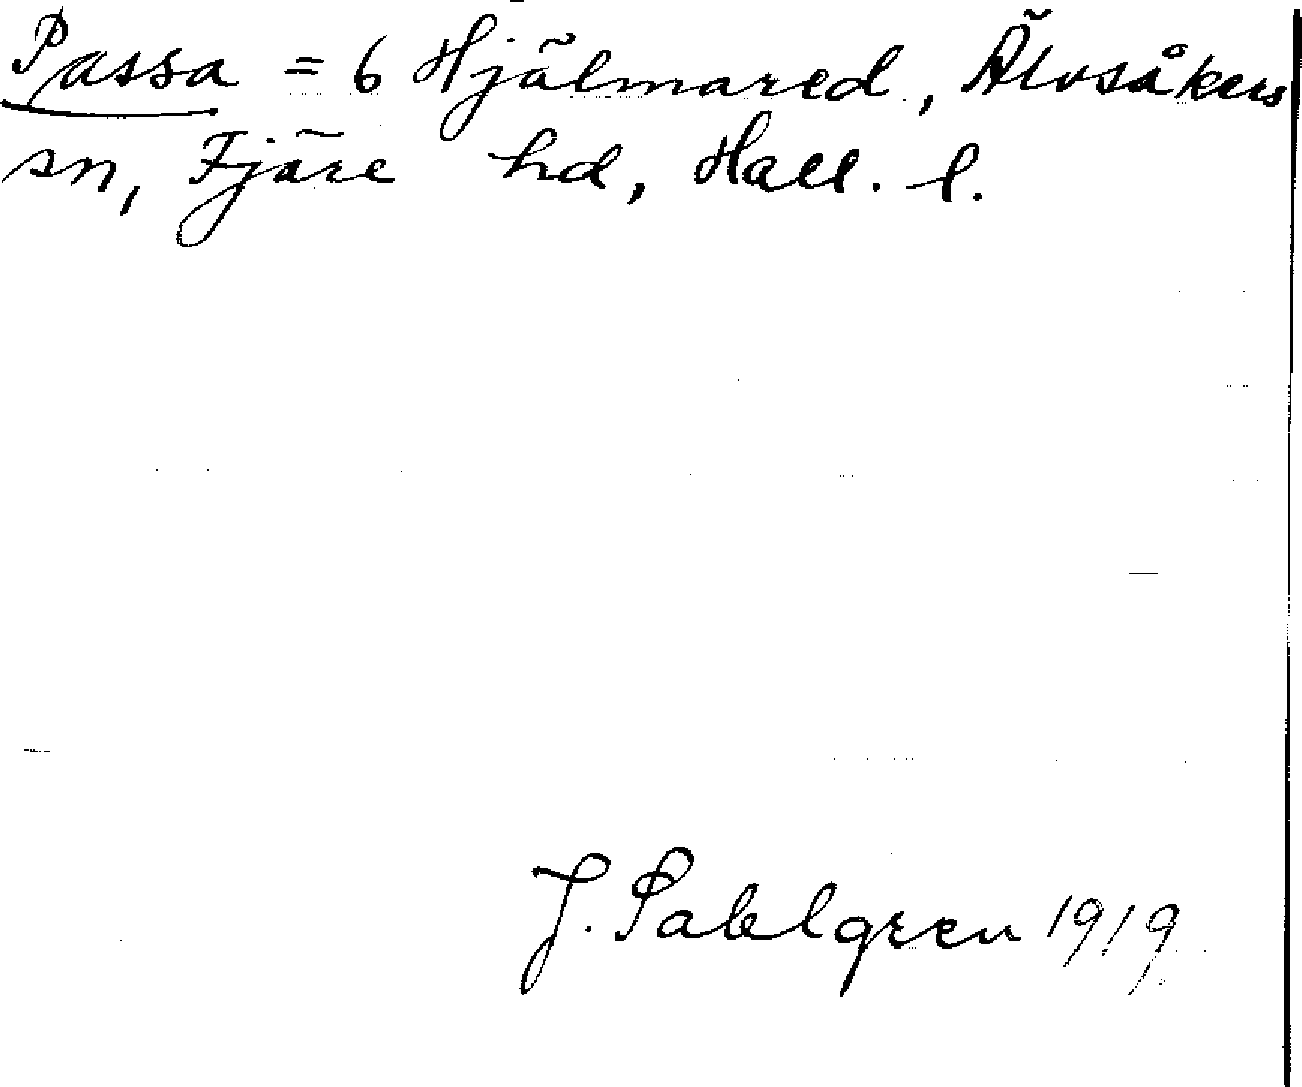 Passa = 6 Hjälmared, Älvsåkers
sn, Fjäre hd, Hall. l.
J. Sahlgren 1919